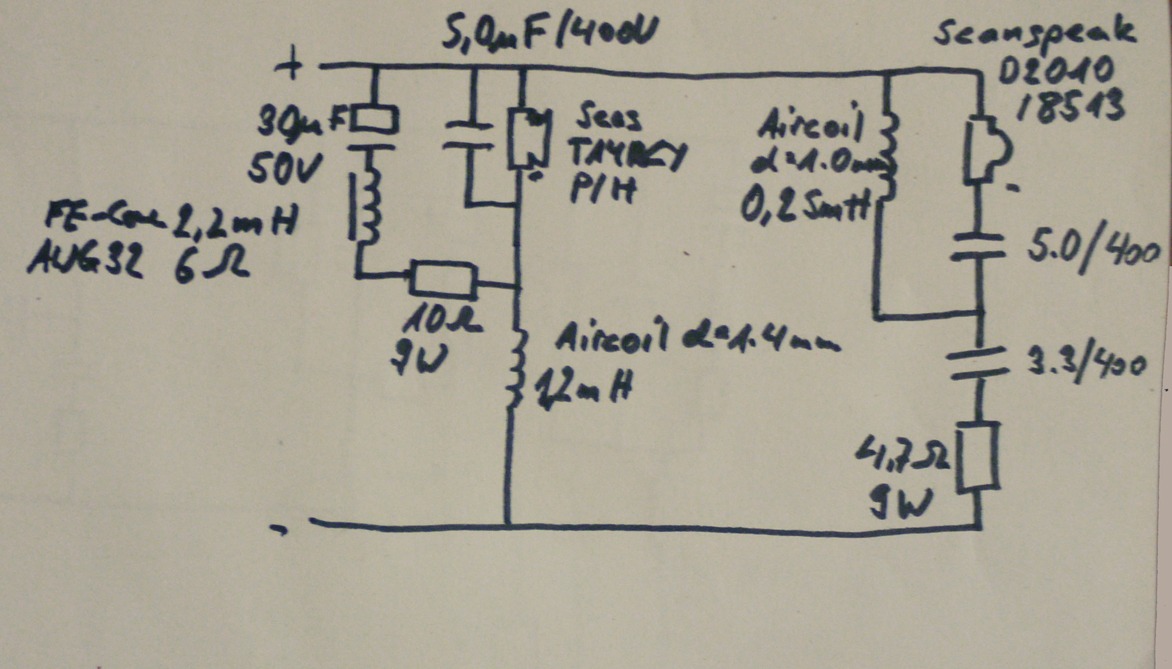 5,0µF/400V
+
30µF
50V
FE-Core 2,2mH
AWG32 6Ω
10Ω
9W
Seas
P/H
Aircoil d=1.4mm
1,2mH
Aircoil
d=1.0mm
0,25mH
Scanspeak
D2010
18513
5.0/400
3.3/400
4,7Ω
9W
-